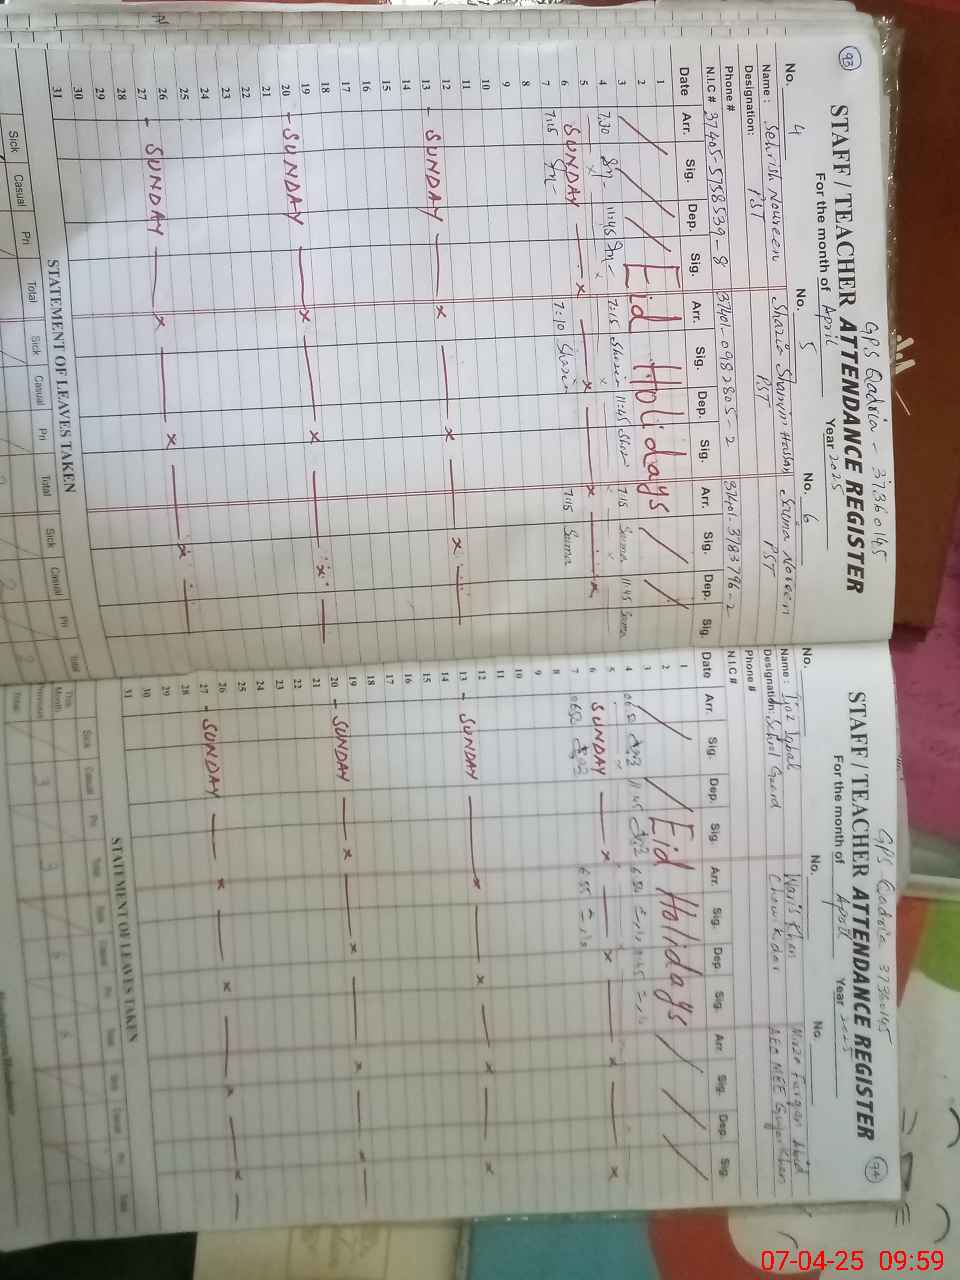 93
GPS Qadria - 37360145
STAFF / TEACHER ATTENDANCE REGISTER
For the month of April Year 2025
No. 4 No. 5 No. 6
Name: Sehrish Noureen Shazia Shamim Hassan Saima Noreen
Designation: PST PST PST
Phone #
N.I.C # 37405-5758539-8 37401-0982805-2 37401-3783796-2
Date Arr. Sig. Dep. Sig. Arr. Sig. Dep. Sig. Arr. Sig. Dep. Sig.
1
2 Eid Holidays
3
4 7:30 11:45 7:15 11:45 7:15 Saima 11:45 Saima
5
6 SUNDAY
7 7:15 7:10 Shazia 7:15 Saima
8
9
10
11
12
13 - SUNDAY
14
15
16
17
18
19
20 - SUNDAY
21
22
23
24
25
26
27 - SUNDAY
28
29
30
31
STATEMENT OF LEAVES TAKEN
Sick Casual Pri Total Sick Casual Pri Total Sick Casual Pri Total
94
GPS Qadria 37360145
STAFF / TEACHER ATTENDANCE REGISTER
For the month of April Year 2025
No. No. No.
Name: Ijaz Iqbal Waris Khan Mirza Furqan Abid
Designation: School Guard Chowkidar AEO MEE Gujar Khan
Phone #
N.I.C #
Date Arr. Sig. Dep. Sig. Arr. Sig. Dep. Sig. Arr. Sig. Dep. Sig.
1
2 Eid Holidays
3
4 11:45
5
6 SUNDAY
7 0652 655
8
9
10
11
12
13 - SUNDAY
14
15
16
17
18
19
20 - SUNDAY
21
22
23
24
25
26
27 - SUNDAY
28
29
30
31
STATEMENT OF LEAVES TAKEN
Sick Casual Pri Total
This Month
07-04-25 09:59